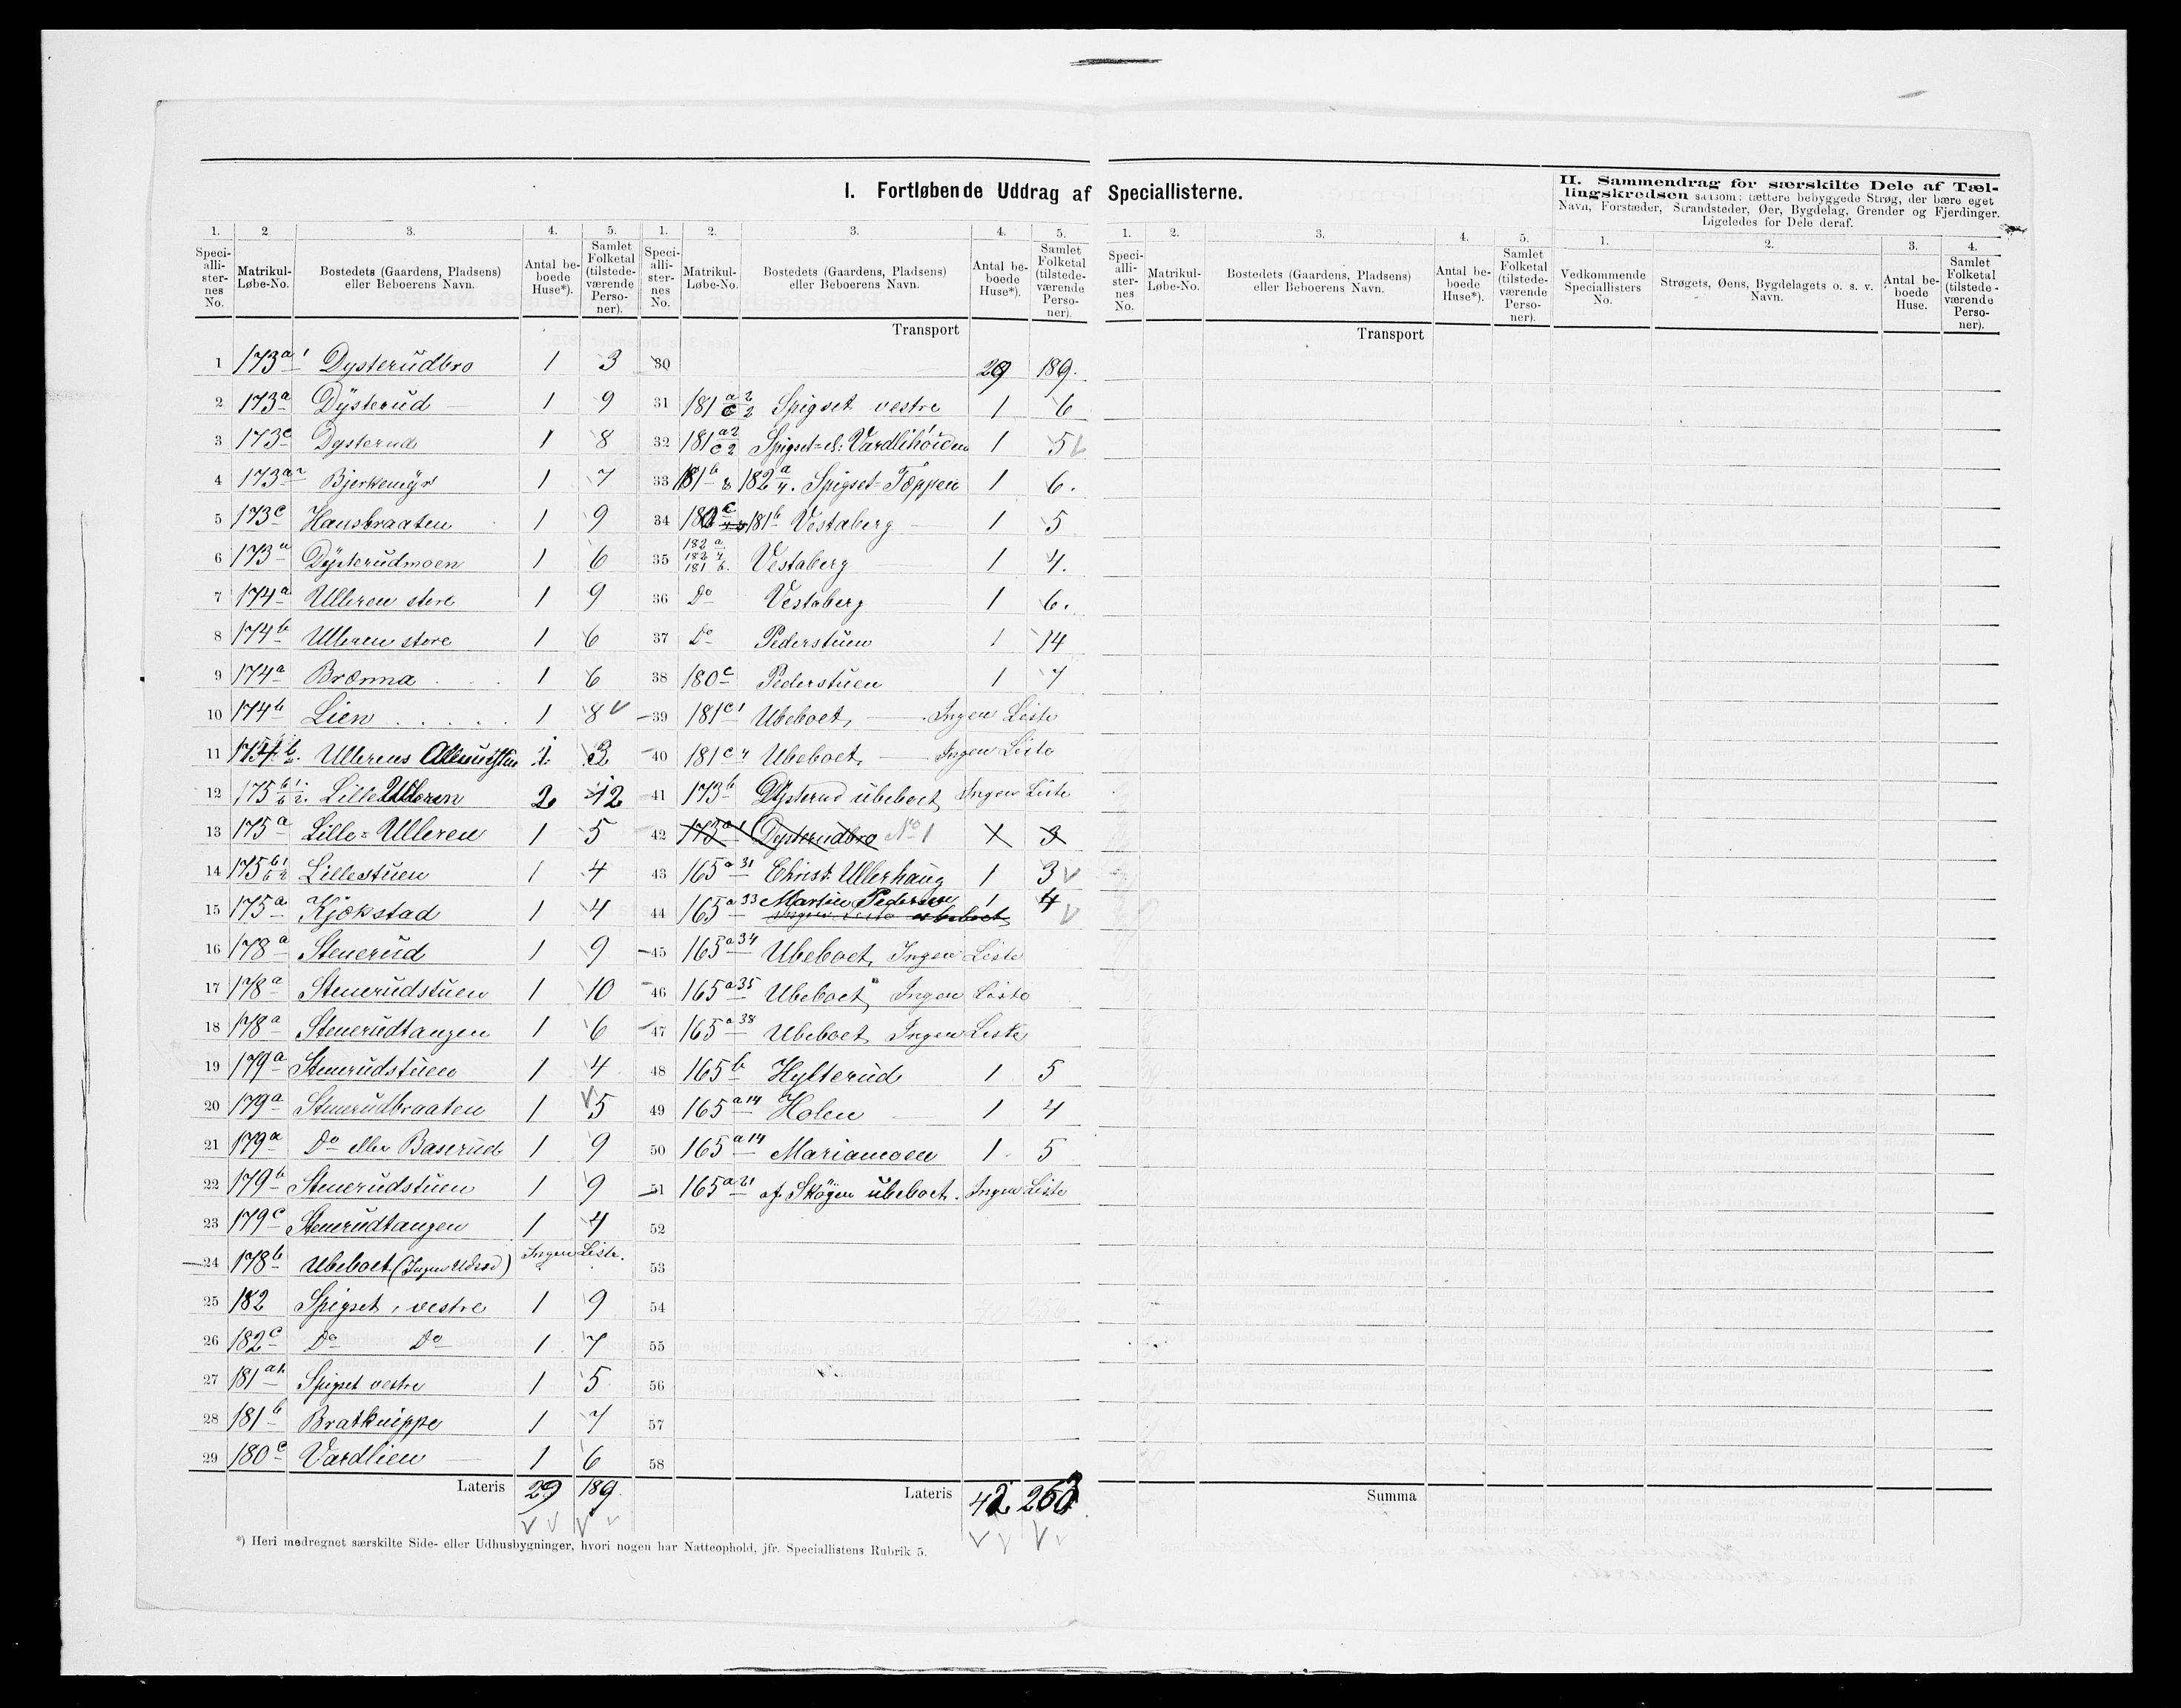 I. Fortløbende Uddrag af Speciallisterne.
II. Sammendrag for særskilte Dele af Tæl-
lingskredsen saasom: tættere bebyggede Strøg, der bære eget
Navn, Forstæder, Strandsteder, Øer, Bygdelag, Grender og Fjerdinger.
Ligeledes for Dele deraf.
1. 2. 3. 4. 5. 1. 2. 3. 4. 5. 1. 2. 3. 4. 5. 1. 2. 3. 4.
Speciallisternes No. Matrikul-Løbe-No. Bostedets (Gaardens, Pladsens) eller Beboerens Navn. Antal beboede Huse*). Samlet Folketal (tilstedeværende Personer).
Speciallisternes No. Matrikul-Løbe-No. Bostedets (Gaardens, Pladsens) eller Beboerens Navn. Antal beboede Huse*). Samlet Folketal (tilstedeværende Personer).
Speciallisternes No. Matrikul-Løbe-No. Bostedets (Gaardens, Pladsens) eller Beboerens Navn. Antal beboede Huse*). Samlet Folketal (tilstedeværende Personer).
Vedkommende Speciallisters No. Strøgets, Øens, Bygdelagets o. s. v. Navn. Antal beboede Huse. Samlet Folketal (tilstedeværende Personer).
1 173a1 Dysterudbro 1 3
2 173a Dysterud 1 9
3 173c Dysterud 1 8
4 173a2 Bjerkemyr 1 7
5 173c Hansbraaten 1 9
6 173a Dysterudmoen 1 6
7 174a Ulleren store 1 9
8 174b Ulleren store 1 6
9 174a Brænna 1 6
10 174b Lien 1 8
11 Ullerens 1 3
12 175 b1 b2. Lille Ulleren 2 12
13 175a Lille=Ulleren 1 5
14 175 b1 b2 Lillestuen 1 4
15 175a Kjøkstad 1 4
16 178a Stenerud 1 9
17 178a Stenerudstuen 1 10
18 178a Stenerudtangen 1 6
19 179a Stenerudstuen 1 4
20 179a Stenerudbraaten 1 5
21 179a Do eller Baserud 1 9
22 179b Stenerudstuen 1 9
23 179c Stenerudtangen 1 4
24 178b Ubeboet (Ingen Udsæd) Ingen Liste.
25 182 Spigset, vestre 1 9
26 182c Do Do 1 7
27 181 Spigset vestre 1 5
28 181b Bratknippe 1 7
29 180c Vardlien 1 6
Lateris 29 189.
Transport
30 29 189.
31 181 a2 c2 Spigset vestre 1 6
32 181 a2 c2 Spigset=el: Vardlihöiden 1 5
33 181b & 182a 4. Spigset=Toppen 1 6.
34 181b Vestaberg 1 5
35 182 a 182 4 181 b. Vestaberg 1 4.
36 Do Vestaberg 1 6.
37 Do Pederstuen 1 14
38 180c Pederstuen 1 7
39 181c1 Ubeboet, Ingen Liste
40 181c4 Ubeboet, Ingen Liste
41 173b Dysterud ubeboet Ingen Liste
42 173a1 Dysterudbro No 1 1 3
43 165a31 Christ. Ullerhaug 1 3
44 165a33 Martin Pedersen 1 4
Ingen Liste ubeboet
45 165a34 Ubeboet, Ingen Liste
46 165a35 Ubeboet, Ingen Liste
47 165a38 Ubeboet Ingen Liste
48 165b Hylterud 1 5
49 165a14 Holen 1 4
50 165a14 Mariamoen 1 5
51 165a21 af Skögen ubeboet. Ingen Liste
52
53
54
55
56
57
58
Lateris 42 263
Transport
Summa
*) Heri medregnet særskilte Side- eller Udhusbygninger, hvori nogen har Natteophold, jfr. Speciallistens Rubrik 5.